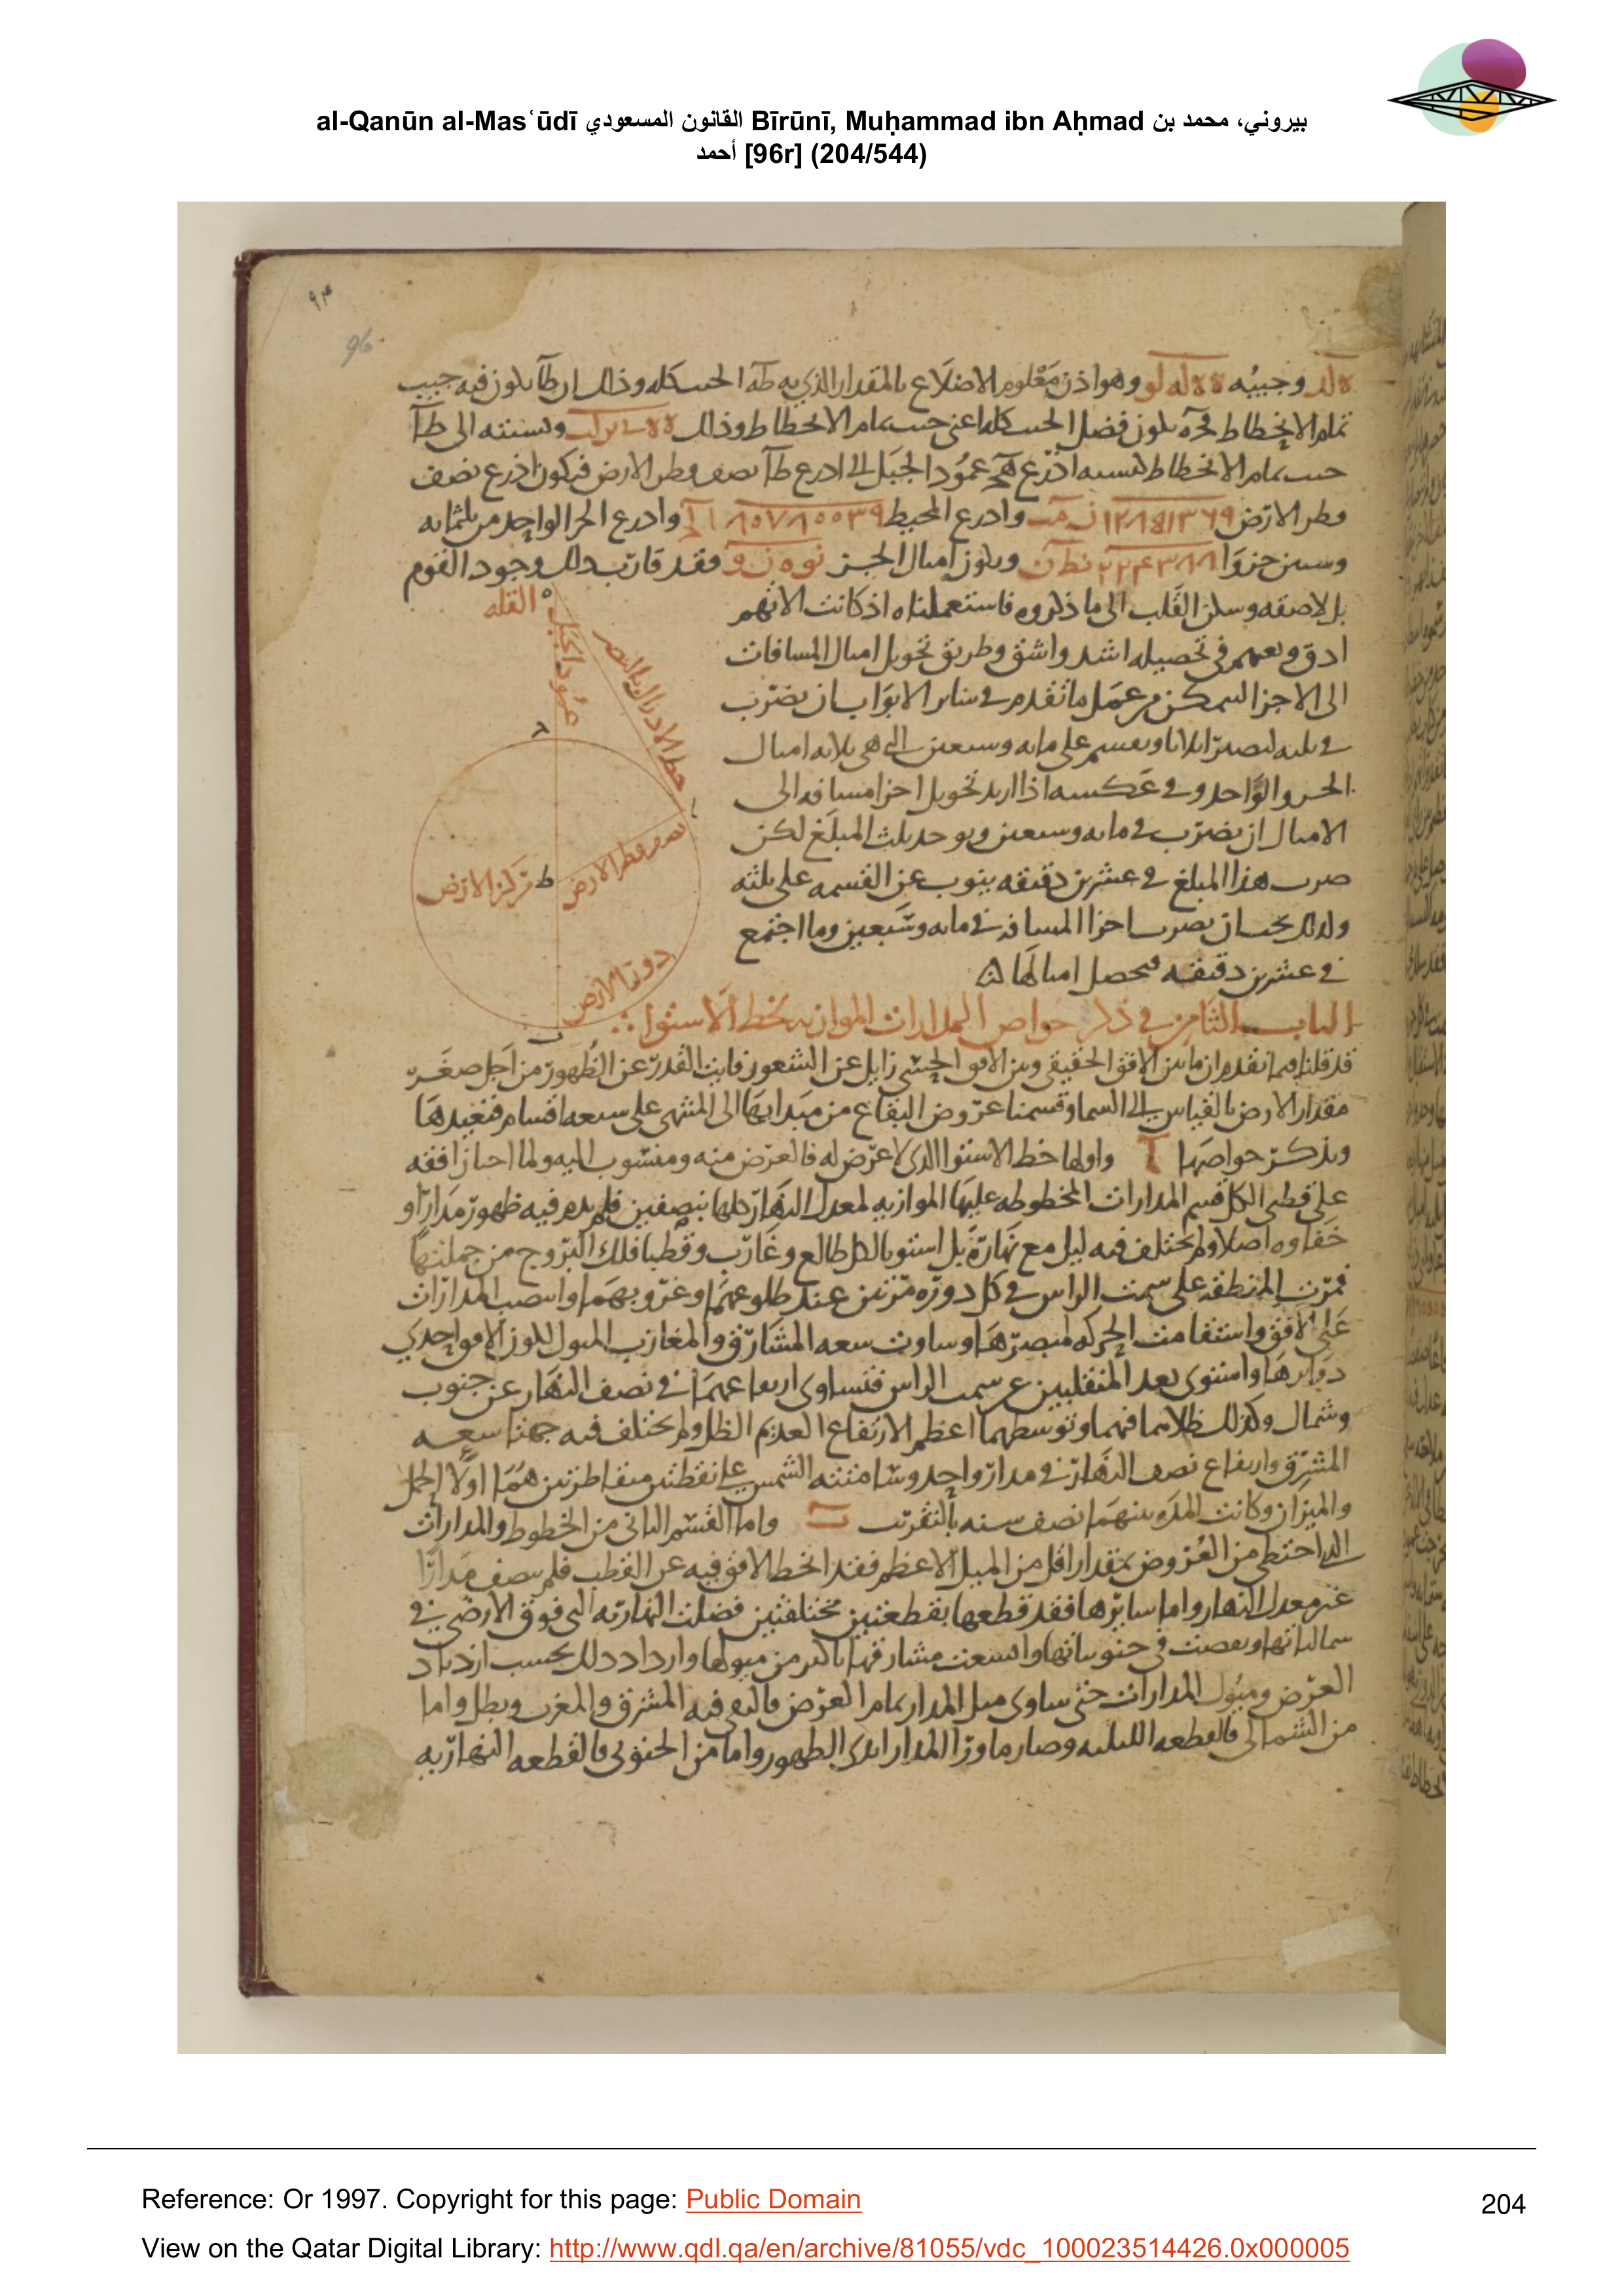 al-Qanūn al-Masʿūdī القانون المسعودي Bīrūnī, Muḥammad ibn Aḥmad بيروني، محمد بن
أحمد [96r] (204/544)
٩٤
96
وجيبه وهو اذن معلوم الاضلاع بالمقدار الذي به طه الجيب كله وذلك ان طا يكون فيه جيب
تمام الانحطاط يكون فضل الجيب كله اعني جيب تمام الانحطاط وذلك ونسبته الى طا
جيب تمام الانحطاط كنسبة اذرع عمود الجبل الى اذرع طا نصف قطر الارض فيكون اذرع نصف
قطر الارض واذرع المحيط واذرع الجز الواحد من ثلثمايه
وستين جزوا ويكون اميال الجز فقد قارب ذلك وجود القوم
بل لاصقه وسكن القلب الى ما ذكروه فاستعملناه اذ كانت الاتهم
ادق وتعبهم في تحصيله اشد واشق وطريق تحويل اميال المسافات
الى الاجزا من عمل ما تقدم في ساير الابواب ان يضرب
في ثلثه ليصير اثلاثا ويقسم على مايه وسبعين التي هي ثلاثه اميال
الجزو الواحد وفي عكسه اذا اريد تحويل اجزا مسافه الى
الاميال ان يضرب في مايه وسبعين ويوخذ ثلث المبلغ لكن
ضرب هذا المبلغ في عشرين دقيقه ينوب عن القسمه على ثلثه
ولذلك يجب ان يضرب اجزا المسافه في مايه وسبعين وما اجتمع
في عشرين دقيقه فيحصل اميالها
القله
عمود الجبل
خط الادراك بالبصر
نصف قطر الارض
ط مركز الارض
دور الارض
الباب الثامن في ذكر خواص المدارات الموازيه لخط الاستوا
قد قلنا فيما تقدم ان ما بين الافق الحقيقي وبين الافق الحسي زايل عن الشعور فايت القدر عن الظهور من اجل صغر
مقدار الارض بالقياس الى السما وقسمنا عروض البقاع من مبدايها الى المنتهى على سبعه اقسام فنعيدها
ونذكر خواصها ا واولها خط الاستوا الذي لا عرض له فالعرض منه ومنسوب اليه ولما اجتاز افقه
على قطبي الكل قسم المدارات المخطوطه عليها الموازيه لمعدل النهار كلها بنصفين فلم يدم فيه ظهور مدار او
خفاوه اصلا ولم يختلف فيه ليل مع نهاره بل استويا لكل طالع وغارب وقطبا فلك البروج من جملتها
فمرت المنطقه على سمت الراس في كل دوره مرتين عند طلوعهما وغروبهما وانتصب المدارات
على الافق واستقامت الحركه لمبصرها وساوت سعه المشارق والمغارب الميول لكون الافق احدي
دوايرها واستوى بعد المنقلبين عن سمت الراس فتساوى ارتفاعهما في نصف النهار عن جنوب
وشمال وكذلك ظلاهما فيهما وتوسطهما اعظم الارتفاع العديم الظل ولم يختلف فيه جهتا سعه
المشرق وارتفاع نصف النهار في مدار واحد وسامتته الشمس على نقطتين متقاطرتين هما اولا الحمل
والميزان وكانت المده بينهما نصف سنه بالتقريب ب واما القسم الثاني من الخطوط والمدارات
التي من العروض بمقدار اقل من الميل الاعظم فقد انحط الافق فيه عن القطب فلم ينصف مدارا
غير معدل النهار واما سايرها فقد قطعها بقطعتين مختلفتين فضلت النهاريه التي فوق الارض في
شمالياتها ونقصت في جنوبياتها واتسعت مشارقها باكثر من ميولها وازداد ذلك بحسب ازدياد
العرض وميول المدارات حتى ساوى ميل المدار تمام العرض فالتقى فيه المشرق والمغرب وبطل واما
من الشمالي فالقطعه الليليه وصار ما ورا المدار ابدي الظهور واما من الجنوبي فالقطعه النهاريه
Reference: Or 1997. Copyright for this page: Public Domain
204
View on the Qatar Digital Library: http://www.qdl.qa/en/archive/81055/vdc_100023514426.0x000005